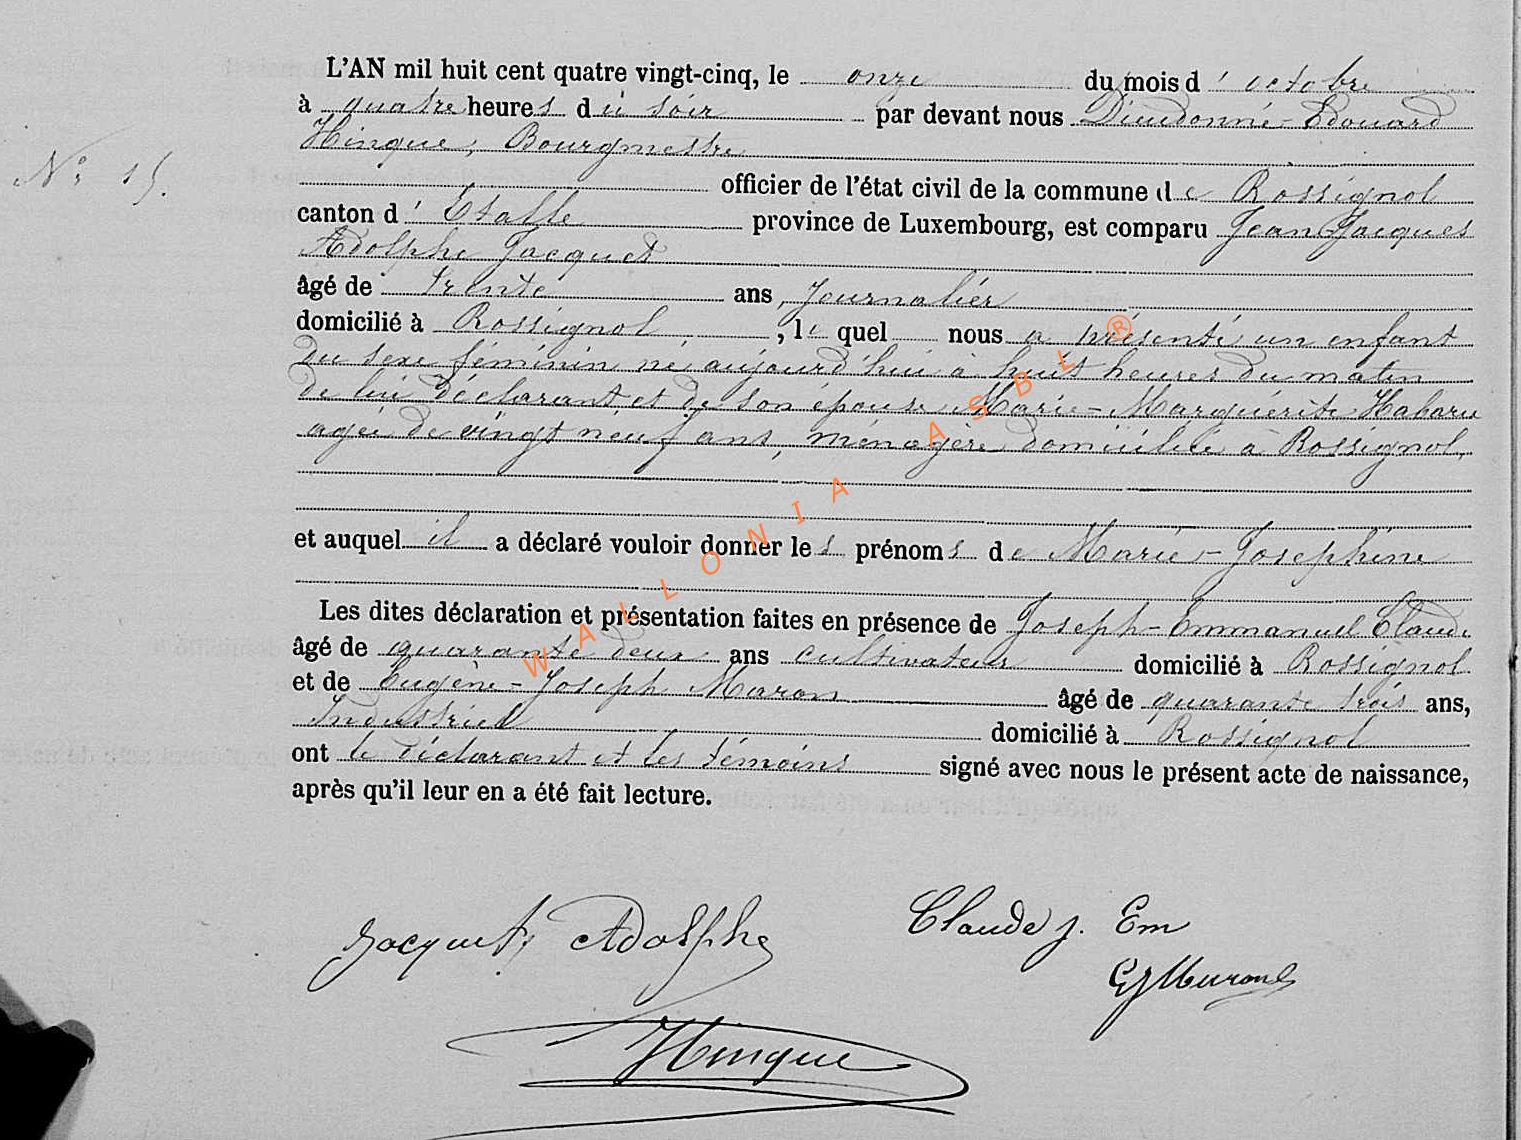 L'AN mil huit cent quatre vingt-cinq, le onze du mois d'octobre
à quatre heures du soir par devant nous Dieudonné-Edouard
Hinque, Bourgmestre
N° 15.
officier de l'état civil de la commune de Rossignol
canton d'Etalle province de Luxembourg, est comparu Jean-Jacques
Adolphe Jacquet
âgé de trente ans, Journalier
domicilié à Rossignol, le quel nous a présenté un enfant
du sexe féminin né aujourd'hui à huit heures du matin
de lui déclarant et de son épouse Marie-Marguérite Habaru
agée de vingt neuf ans, ménagère domiciliée à Rossignol,
et auquel il a déclaré vouloir donner les prénoms de Marie-Joséphine
Les dites déclaration et présentation faites en présence de Joseph-Emmanuel Claude
âgé de quarante deux ans cultivateur domicilié à Rossignol
et de Eugène-Joseph Maron âgé de quarante trois ans,
Industriel domicilié à Rossignol
ont le déclarant et les témoins signé avec nous le présent acte de naissance,
après qu'il leur en a été fait lecture.
Jacquet Adolphe
Claude j. Em
Hinque
WALLONIA ASBL ®